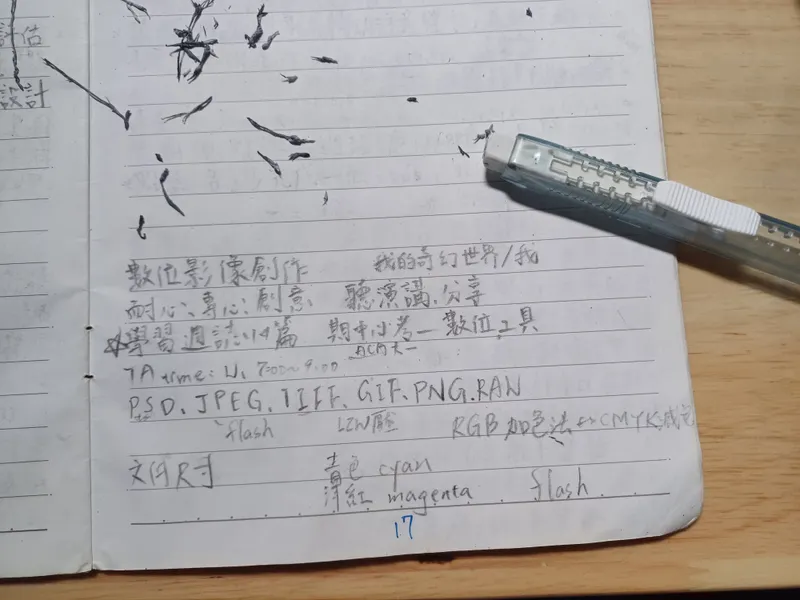 計估
設計
數位影像創作 我的奇幻世界/我
耐心、專心、創意 聽演講、分享
學習週誌:14篇 期中小考—數位工具
ACA大一
TA time: W. 7:00~9:00
PSD、JPEG、TIFF、GIF、PNG、RAW
flash LZW RGB 加色法 CMYK
文件尺寸 青色 cyan
洋紅 magenta flash
17